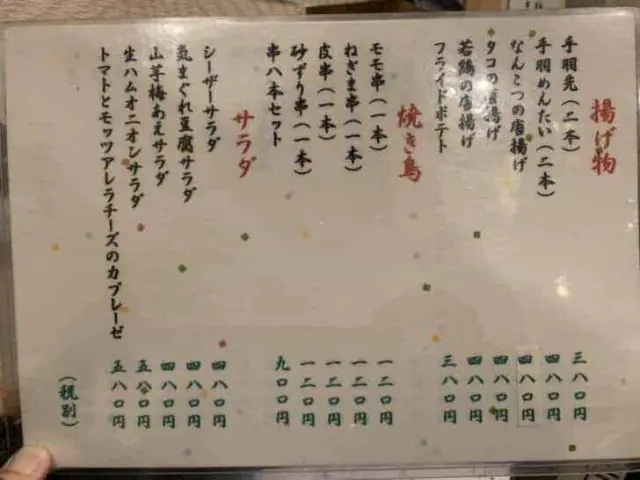 揚げ物
手羽先(二本)
三八〇円
手羽めんたい(二本)
四八〇円
なんこつの唐揚げ
四八〇円
タコの唐揚げ
四八〇円
若鶏の唐揚げ
四八〇円
フライドポテト
三八〇円
焼き鳥
モモ串(一本)
一二〇円
ねぎま串(一本)
一二〇円
皮串(一本)
一二〇円
砂ずり串(一本)
一二〇円
串八本セット
九〇〇円
サラダ
シーザーサラダ
四八〇円
気まぐれ豆腐サラダ
四八〇円
山芋梅あえサラダ
四八〇円
生ハムオニオンサラダ
五八〇円
トマトとモッツアレラチーズのカプレーゼ
五八〇円
(税別)